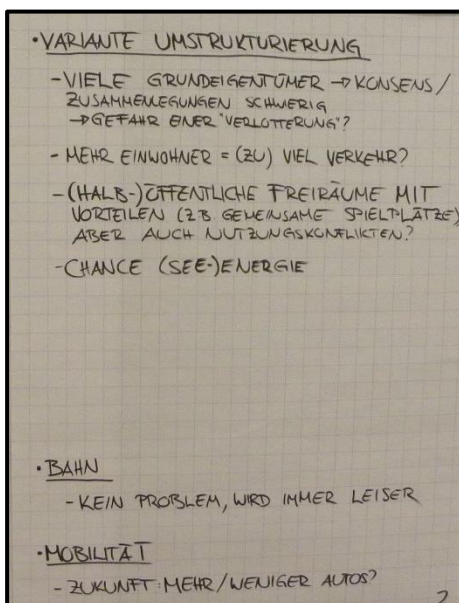 • VARIANTE UMSTRUKTURIERUNG
- VIELE GRUNDEIGENTÜMER → KONSENS/
ZUSAMMENLEGUNGEN SCHWERIG
→ GEFAHR EINER "VERLOTTERUNG"?
- MEHR EINWOHNER = (ZU) VIEL VERKEHR?
- (HALB-)ÖFFENTLICHE FREIRÄUME MIT
VORTEILEN (ZB. GEMEINSAME SPIELPLÄTZE)
ABER AUCH NUTZUNGSKONFLIKTEN?
- CHANCE (SEE-)ENERGIE
• BAHN
- KEIN PROBLEM, WIRD IMMER LEISER
• MOBILITÄT
- ZUKUNFT: MEHR/WENIGER AUTOS?